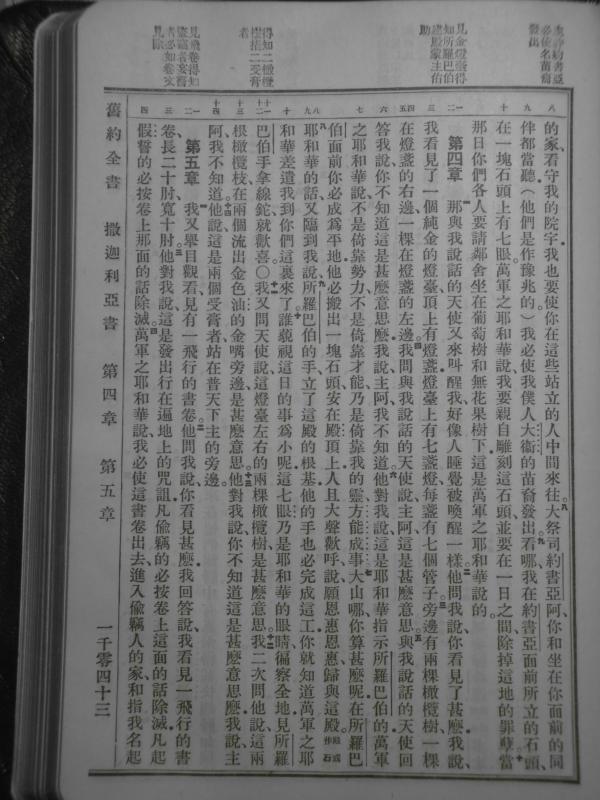 必使名苗裔
發出
見金燈臺得
知所羅巴伯
建殿蒙主佑
助
得知二橄欖
樹指二受膏
者
見飛卷得知
盜竊者妄誓
者必如卷文
見除
八
的家看守我的院宇我也要使你在這些站立的人中間來往九大祭司約書亞阿你和坐在你面前的同
九
伴都當聽(他們是作豫兆的)我必使我僕人大衛的苗裔發出九看哪我在約書亞面前所立的石頭
十
在一塊石頭上有七眼萬軍之耶和華說我要親自雕刻這石頭並要在一日之間除掉這地的罪孽十當
那日你們各人要請鄰舍坐在葡萄樹和無花果樹下這是萬軍之耶和華說的
一二
第四章 一那與我說話的天使又來叫醒我好像人睡覺被喚醒一樣二他問我說你看見了甚麼我說
三
我看見了一個純金的燈臺頂上有燈盞燈臺上有七盞燈每盞有七個管子三旁邊有兩棵橄欖樹一棵
四五
在燈盞的右邊一棵在燈盞的左邊四我問與我說話的天使說主阿這是甚麼意思五與我說話的天使回
六
答我說你不知道這是甚麼意思麼我說主阿我不知道六他對我說這是耶和華指示所羅巴伯的萬軍
七
之耶和華說不是倚靠勢力不是倚靠才能乃是倚靠我的靈方能成事七大山哪你算甚麼呢在所羅巴
伯面前你必成為平地他必搬出一塊石頭安在殿頂上人且大聲歡呼說願恩惠恩惠歸與這殿殿或作石
八九
八耶和華的話又臨到我說九所羅巴伯的手立了這殿的根基他的手也必完成這工你就知道萬軍之耶
十
和華差遣我到你們這裏來了十誰藐視這日的事為小呢這七眼乃是耶和華的眼睛徧察全地見所羅
十一十二
巴伯手拿線鉈就歡喜○十一我又問天使說這燈臺左右的兩棵橄欖樹是甚麼意思十二我二次問他說這兩
根橄欖枝在兩個流出金色油的金嘴旁邊是甚麼意思十三他對我說你不知道這是甚麼意思麼我說主
十四
阿我不知道十四他說這是兩個受膏者站在普天下主的旁邊
一二
第五章 一我又舉目觀看見有一飛行的書卷二他問我說你看見甚麼我回答說我看見一飛行的書
三
卷長二十肘寬十肘三他對我說這是發出行在遍地上的咒詛凡偷竊的必按卷上這面的話除滅凡起
四
假誓的必按卷上那面的話除滅四萬軍之耶和華說我必使這書卷出去進入偷竊人的家和指我名起
舊約全書 撒迦利亞書 第四章 第五章 一千零四十三